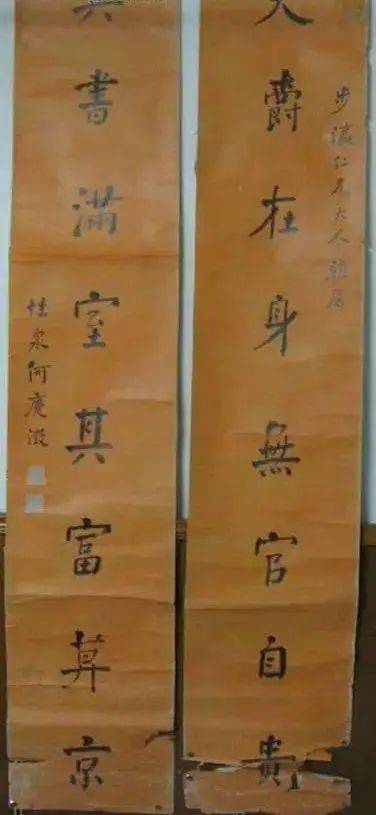 天爵在身無官自貴
步瀛仁兄大人雅属
異書滿室其富莫京
泉何慶澂